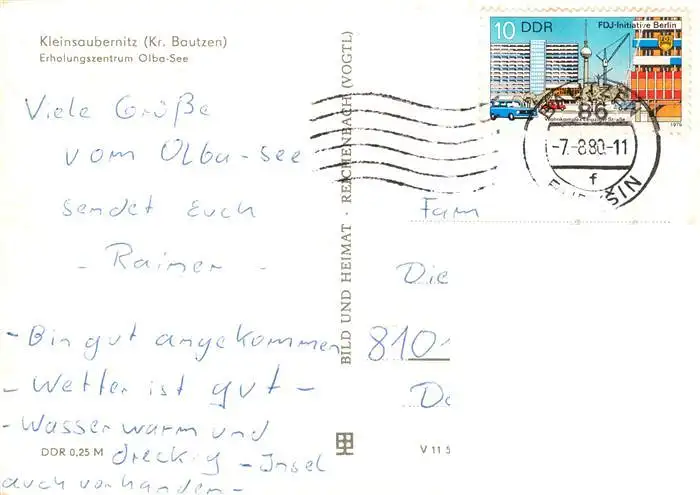 Kleinsaubernitz (Kr. Bautzen)
Erholungszentrum Olba-See
Viele Grüße
vom Olba-See
sendet Euch
- Rainer -
- Bin gut angekommen
- Wetter ist gut -
- Wasser warm und
dreckig - Insel
auch vorhanden -
DDR 0,25 M
BILD UND HEIMAT · REICHENBACH (VOGTL)
V 11 5
10 DDR
FDJ-Initiative Berlin
Wohnkomplex Leipziger Straße
1979
BAUTZEN
86
-7.-8.80-11
f
Fam
Die
8101